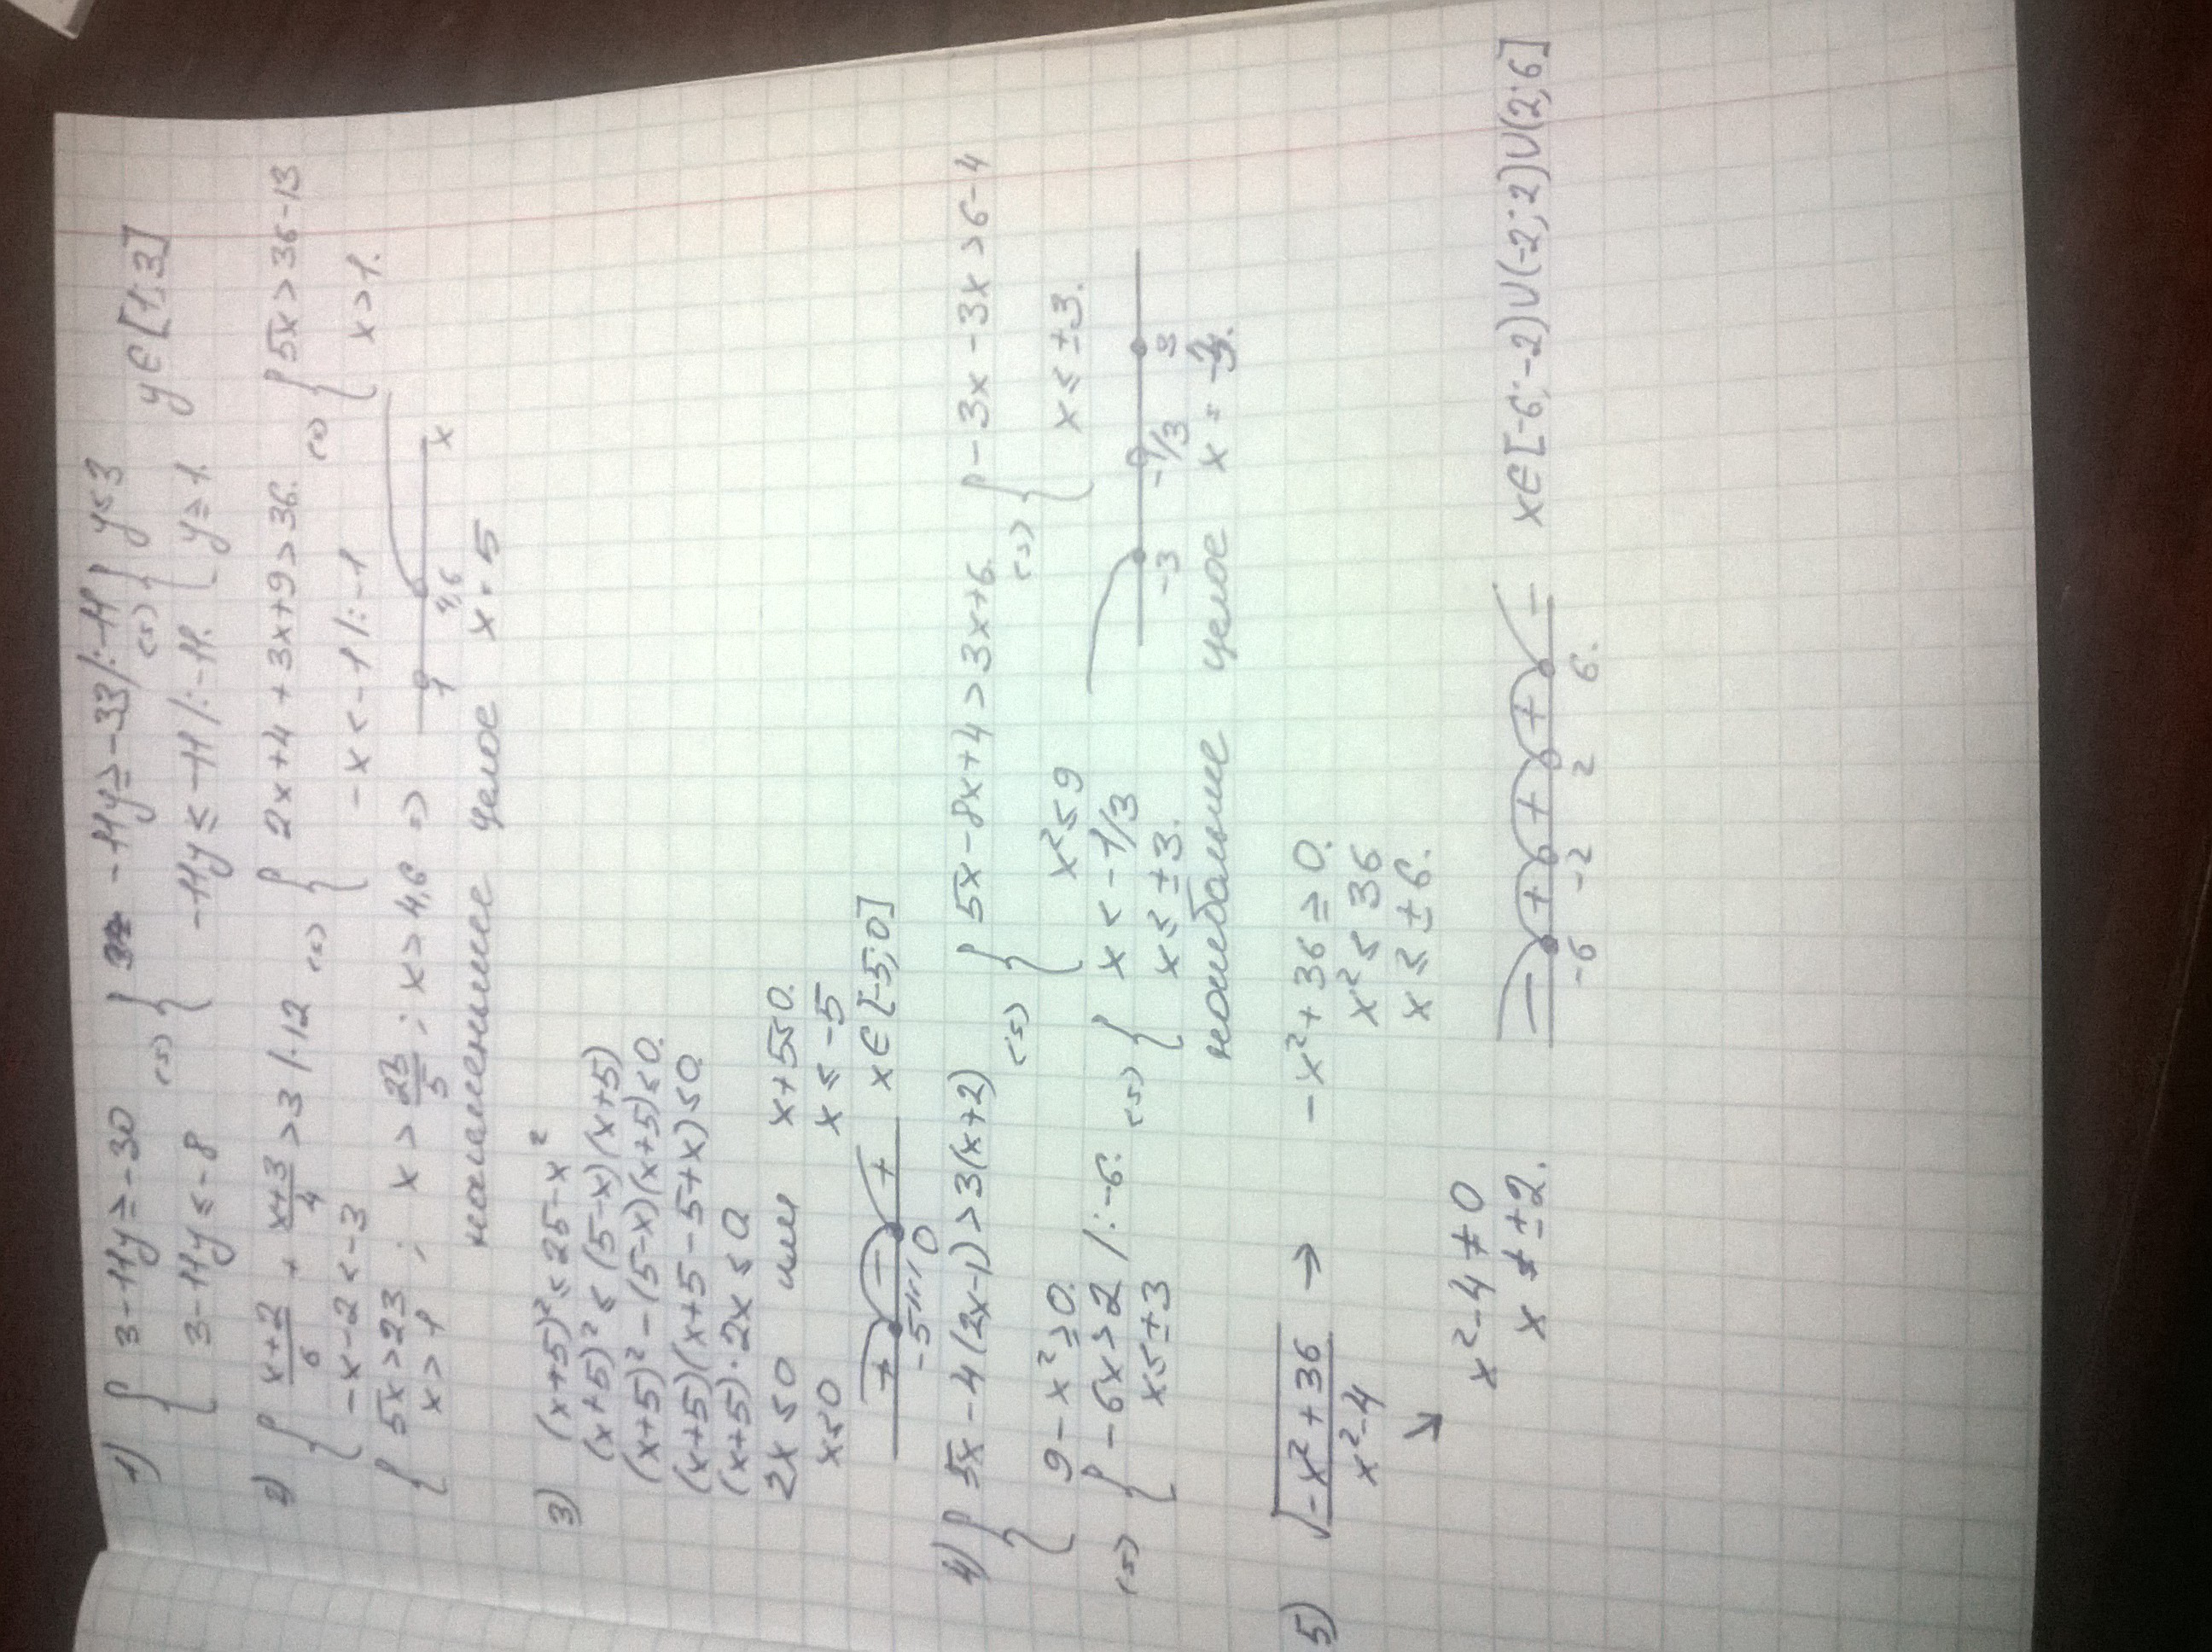 1) { 3-11y ≥ -30 (=) { -11y ≥ -33 /:-11 (=) { y ≤ 3 y ∈ [1;3]
3-11y ≤ -8 -11y ≤ -11 /:-11. y ≥ 1.
2) { x+2/6 + x+3/4 > 3 /·12 (=) { 2x+4+3x+9>36. (=) { 5x>36-13
-x-2<-3 -x<-1 /:-1 x>1.
{ 5x>23 ; x > 23/5 ; x>4,6 =>
x>1 1 4,6 x
наименьшее целое x=5
3) (x+5)² ≤ 25-x²
(x+5)² ≤ (5-x)(x+5)
(x+5)² - (5-x)(x+5) ≤ 0.
(x+5)(x+5-5+x) ≤ 0.
(x+5)·2x ≤ 0
2x ≤ 0 или x+5≤0.
x≤0 x ≤ -5
+ - + x ∈ [-5;0]
-5 0
4) { 5x-4(2x-1)>3(x+2) (=) { 5x-8x+4>3x+6. (=) { -3x-3x>6-4
9-x² ≥ 0. x² ≤ 9 x ≤ ±3.
(=) { -6x>2 /:-6. (=) { x < -1/3
x≤±3 x≤±3. -3 -1/3 3
наибольшее целое x =
5) √-x²+36/x²-4 → -x²+36 ≥ 0.
x² ≤ 36
x ≤ ±6.
x²-4 ≠ 0
x ≠ ±2.
- + + + - x∈[-6;-2)∪(-2;2)∪(2;6]
-6 -2 2 6.